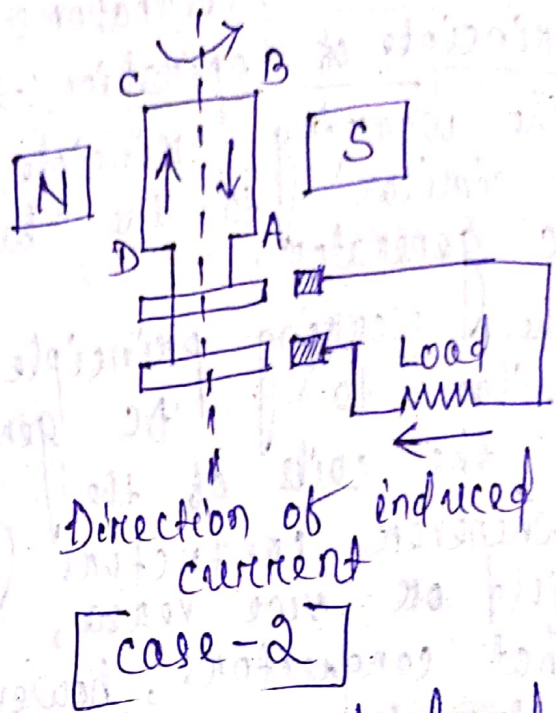 C
B
N
S
D
A
Load
Direction of induced
current
case-2